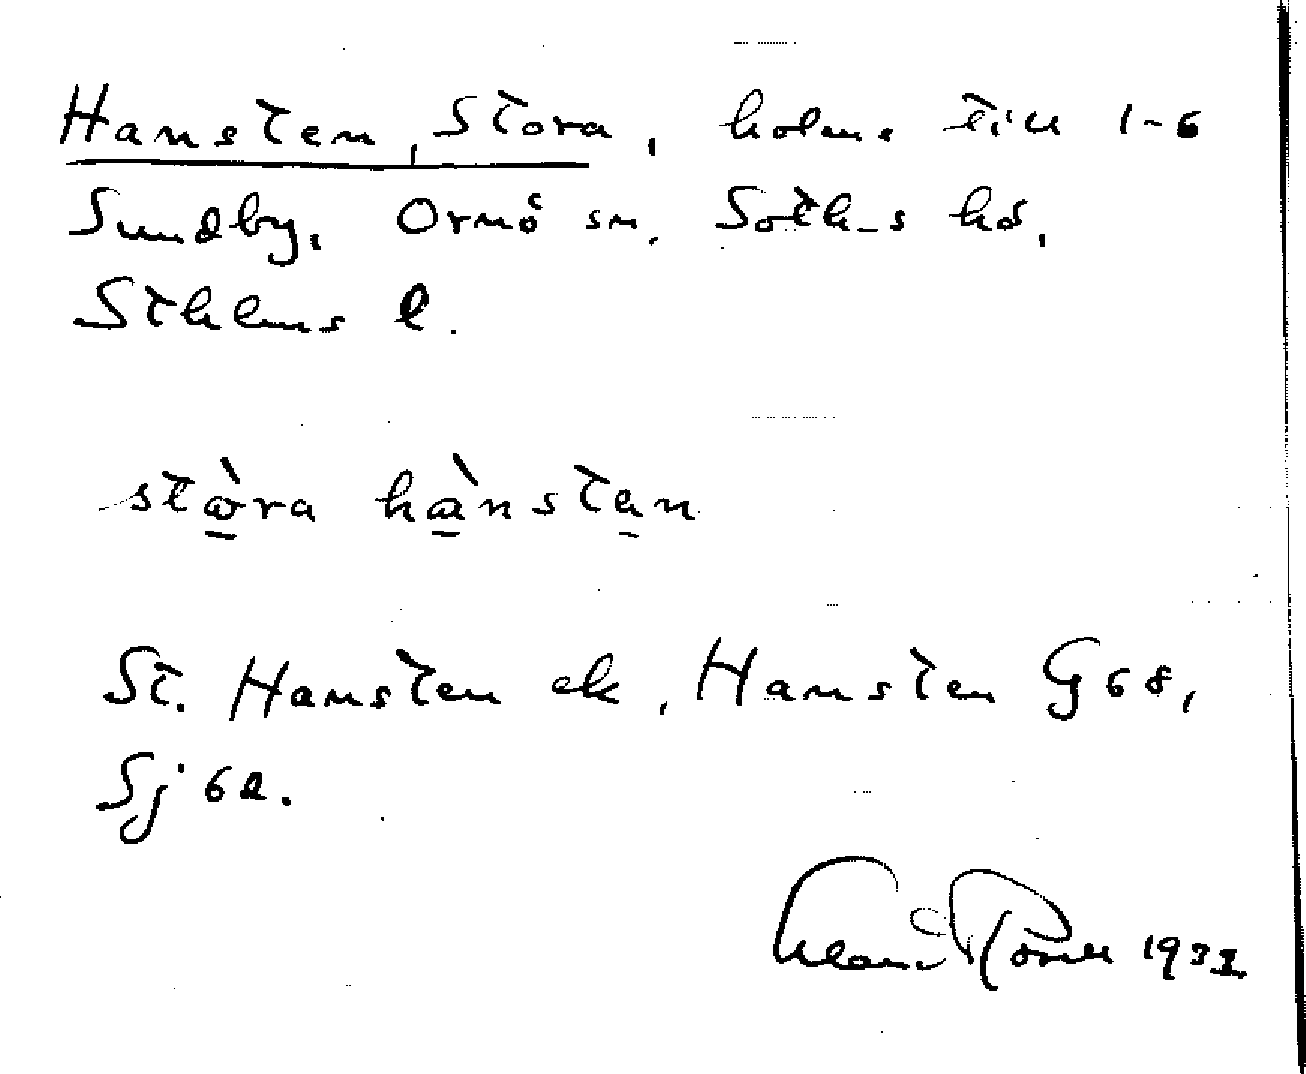 Hansten, Stora, holme till 1-6
Sundby, Ornö sn, Sothms hd,
Sthlms l.
stò̱ra hà̱nsta̱n
St. Hansten ek, Hansten G 68,
Sj 62.
1933